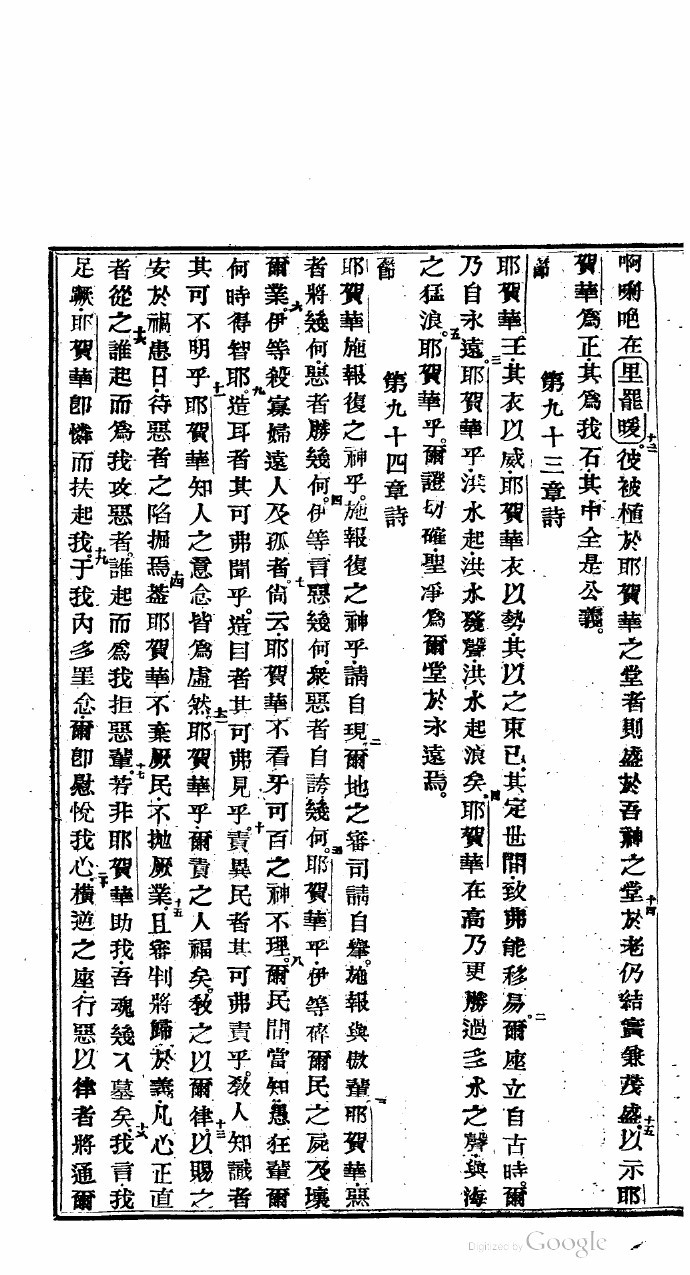 啊唎吧在里罷暖。十三彼被植於耶賀華之堂者則盛於吾神之堂十四於老仍結實兼茂盛。十五以示耶
賀華爲正其爲我石其中全是公義。
第九十三章詩
節耶賀華王其衣以威耶賀華衣以勢其以之束已其定世間致弗能移易。二爾座立自古時。爾
乃自永遠。三耶賀華乎洪水起洪水發聲洪水起浪矣。四耶賀華在高乃更勝過多水之聲與海
之猛浪。五耶賀華乎爾證切確聖凈爲爾堂於永遠焉。
第九十四章詩
節耶賀華施報復之神乎。施報復之神乎請自現二爾地之審司請自舉。施報與傲輩三耶賀華惡
者將幾何惡者勝幾何。四伊等言惡幾何。衆惡者自誇幾何。五耶賀華乎伊等碎爾民之屍及壞
爾業。六伊等殺寡婦遠人及孤者。七尙云耶賀華不看牙可百之神不理。八爾民間當知愚狂輩爾
何時得智耶。九造耳者其可弗聞乎。造目者其可弗見乎。十責異民者其可弗責乎。敎人知識者
其可不明乎十一耶賀華知人之意念皆爲虛然。十二耶賀華乎爾責之人福矣。敎之以爾律。十三以賜之
安於禍患日待惡者之陷掘焉。十四蓋耶賀華不棄厥民不拋厥業。十五且審判將歸於義凡心正直
者從之十六誰起而爲我攻惡者。誰起而爲我拒惡輩。十七若非耶賀華助我吾魂幾入墓矣。十八我言我
足蹶耶賀華卽憐而扶起我。十九于我內多罣念爾卽慰悅我心。二十橫逆之座行惡以律者將通爾
Digitized by Google